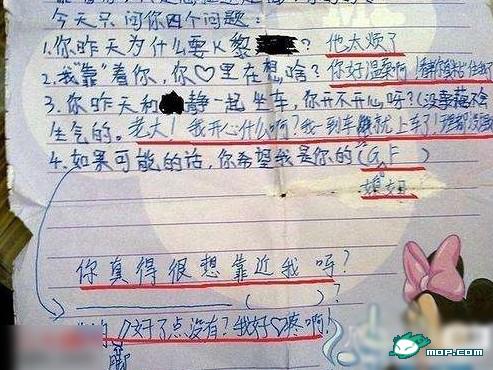 今天只问你四个问题：
1.你昨天为什么要K黎？他太烦了
2.我"靠"着你，你♡里在想啥？你好温柔啊！
3.你昨天和静一起坐车，你开不开心呀？(没事花不会
生气的。老大！我开心什么啊？我一到车就上车了！
4.如果可能的话，你希望我是你的(G.F)
姐姐
你真得很想靠近我吗？
( )？
好了点没有？我好♡疼啊！
脚
MOP.com